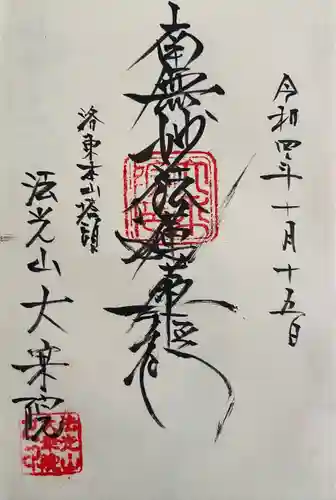 令和四年十月十五日
南無妙法蓮華経
洛東本山塔頭
法光山 大乗院